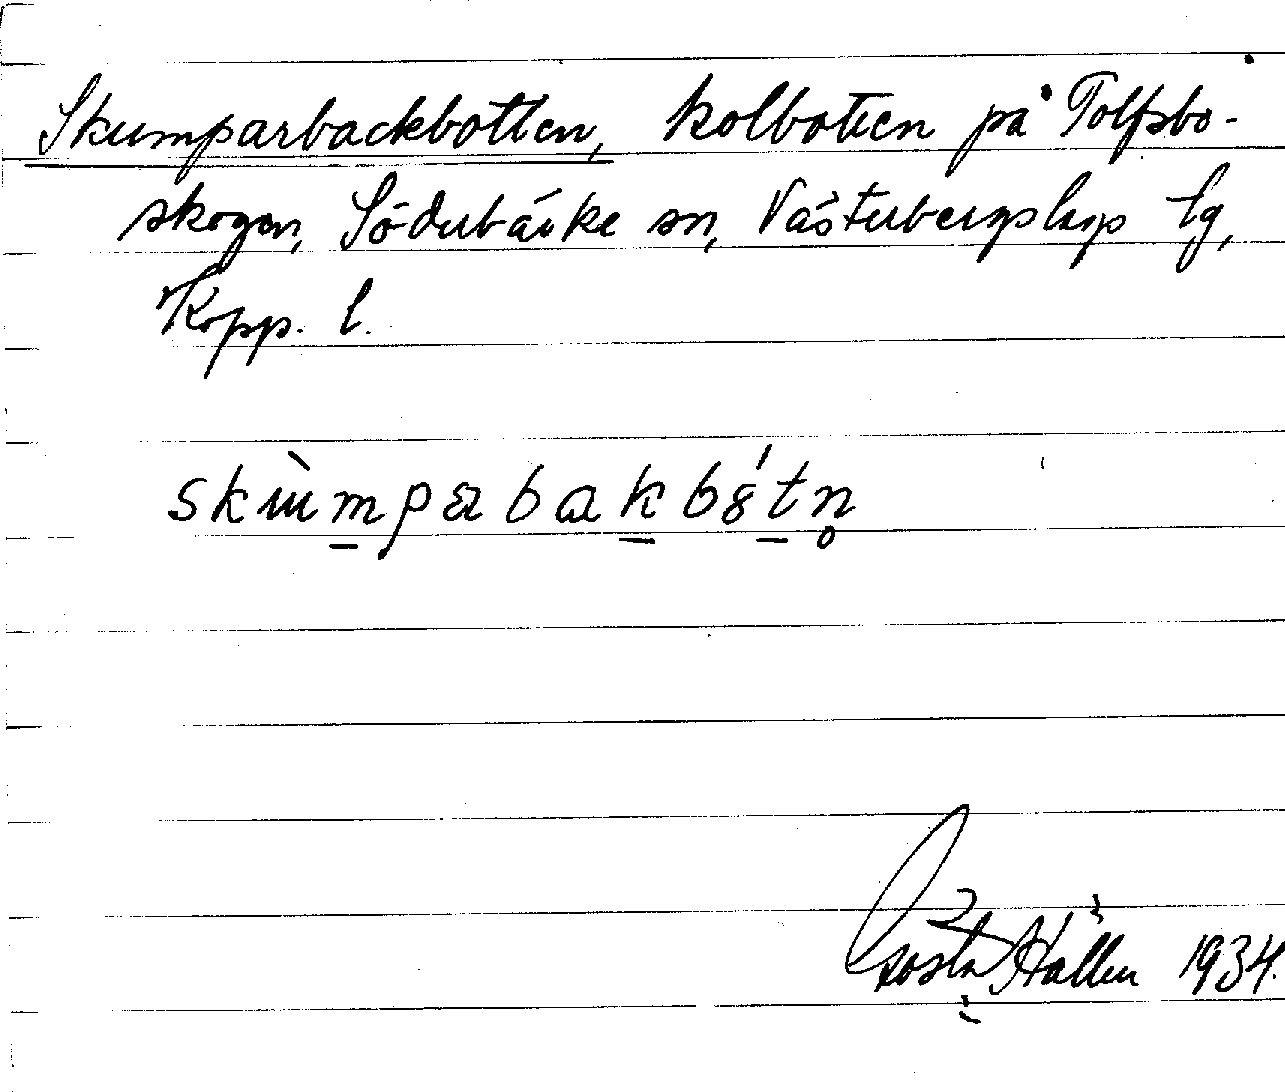 Skumparbackbotten, kolbotten på Tolfsbo-
skogen, Söderbärke sn, Västerbergslags lg,
Kopp. l.
skùmpərbakbó̱tn̥
Gösta Hållén 1934.